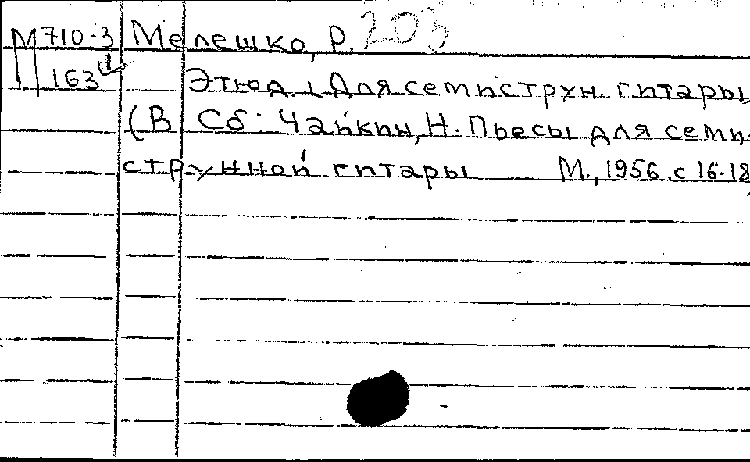 М710-3 Мелешко, Р. 203
163 Этюд. Для семиструн. гитары
(В сб: Чайкин, Н. Пьесы для семи-
струнной гитары М., 1956 с 16-18